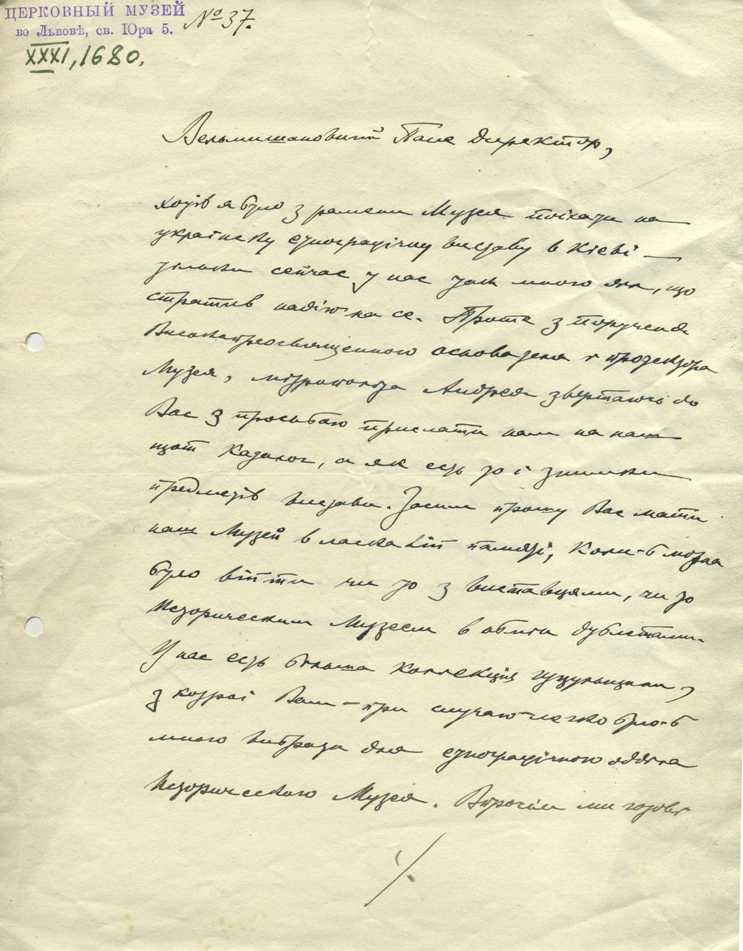 ЦЕРКОВНЫЙ МУЗЕЙ
во Львовѣ, св. Юра 5. № 37.
XXXI, 1680.
Вельмишановний Пане Директор,
хотів я було з рамени Музея поїхати на
українську етнографічну виставу в Київі —
сейчас у нас так много діл, що
стратив надїю на се. Проте з поручення
Високопреосвященного основателя і протектора
Музея, митрополита Андрея звертаюсь до
Вас з просьбою прислати нам на наш
щот каталог, а як єсть то і знимки
предметів вистави. Засим прошу Вас мати
наш Музей в ласкавій памяті, коли-б можна
було війти чи то з виставцями, чи то
Историческим Музеєм в обмін дублетами.
У нас єсть більша коллекція гуцульщини,
з котрої Вам – при случаю легко було-б
много вибрати для етнографічного відділа
Исторического Музея. Впрочім ми готові
./.